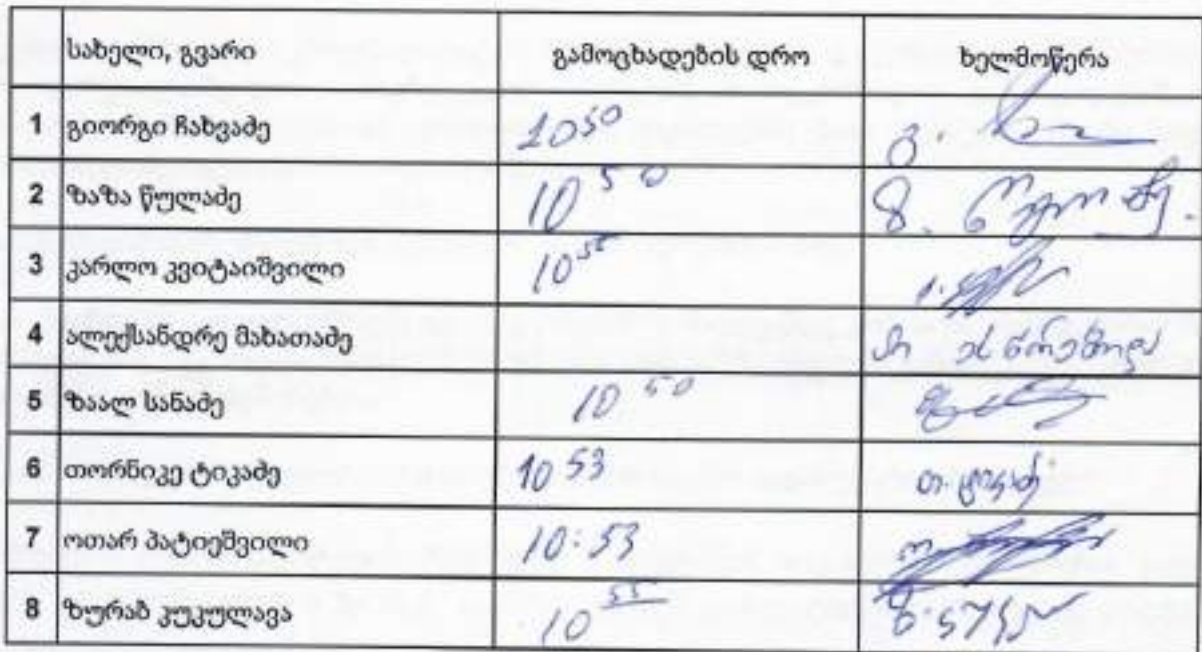 სახელი, გვარი გამოცხადების დრო ხელმოწერა
1 გიორგი ჩახვაძე 10 50
2 ზაზა წულაძე 10 50
3 კარლო კვიტაიშვილი 10 55
4 ალექსანდრე მახათაძე არ ესწრებოდა
5 ზაალ სანაძე 10 50
6 თორნიკე ტიკაძე 10 53 თ. ტიკაძე
7 ოთარ პატიეშვილი 10:53
8 ზურაბ კუკულავა 10 55